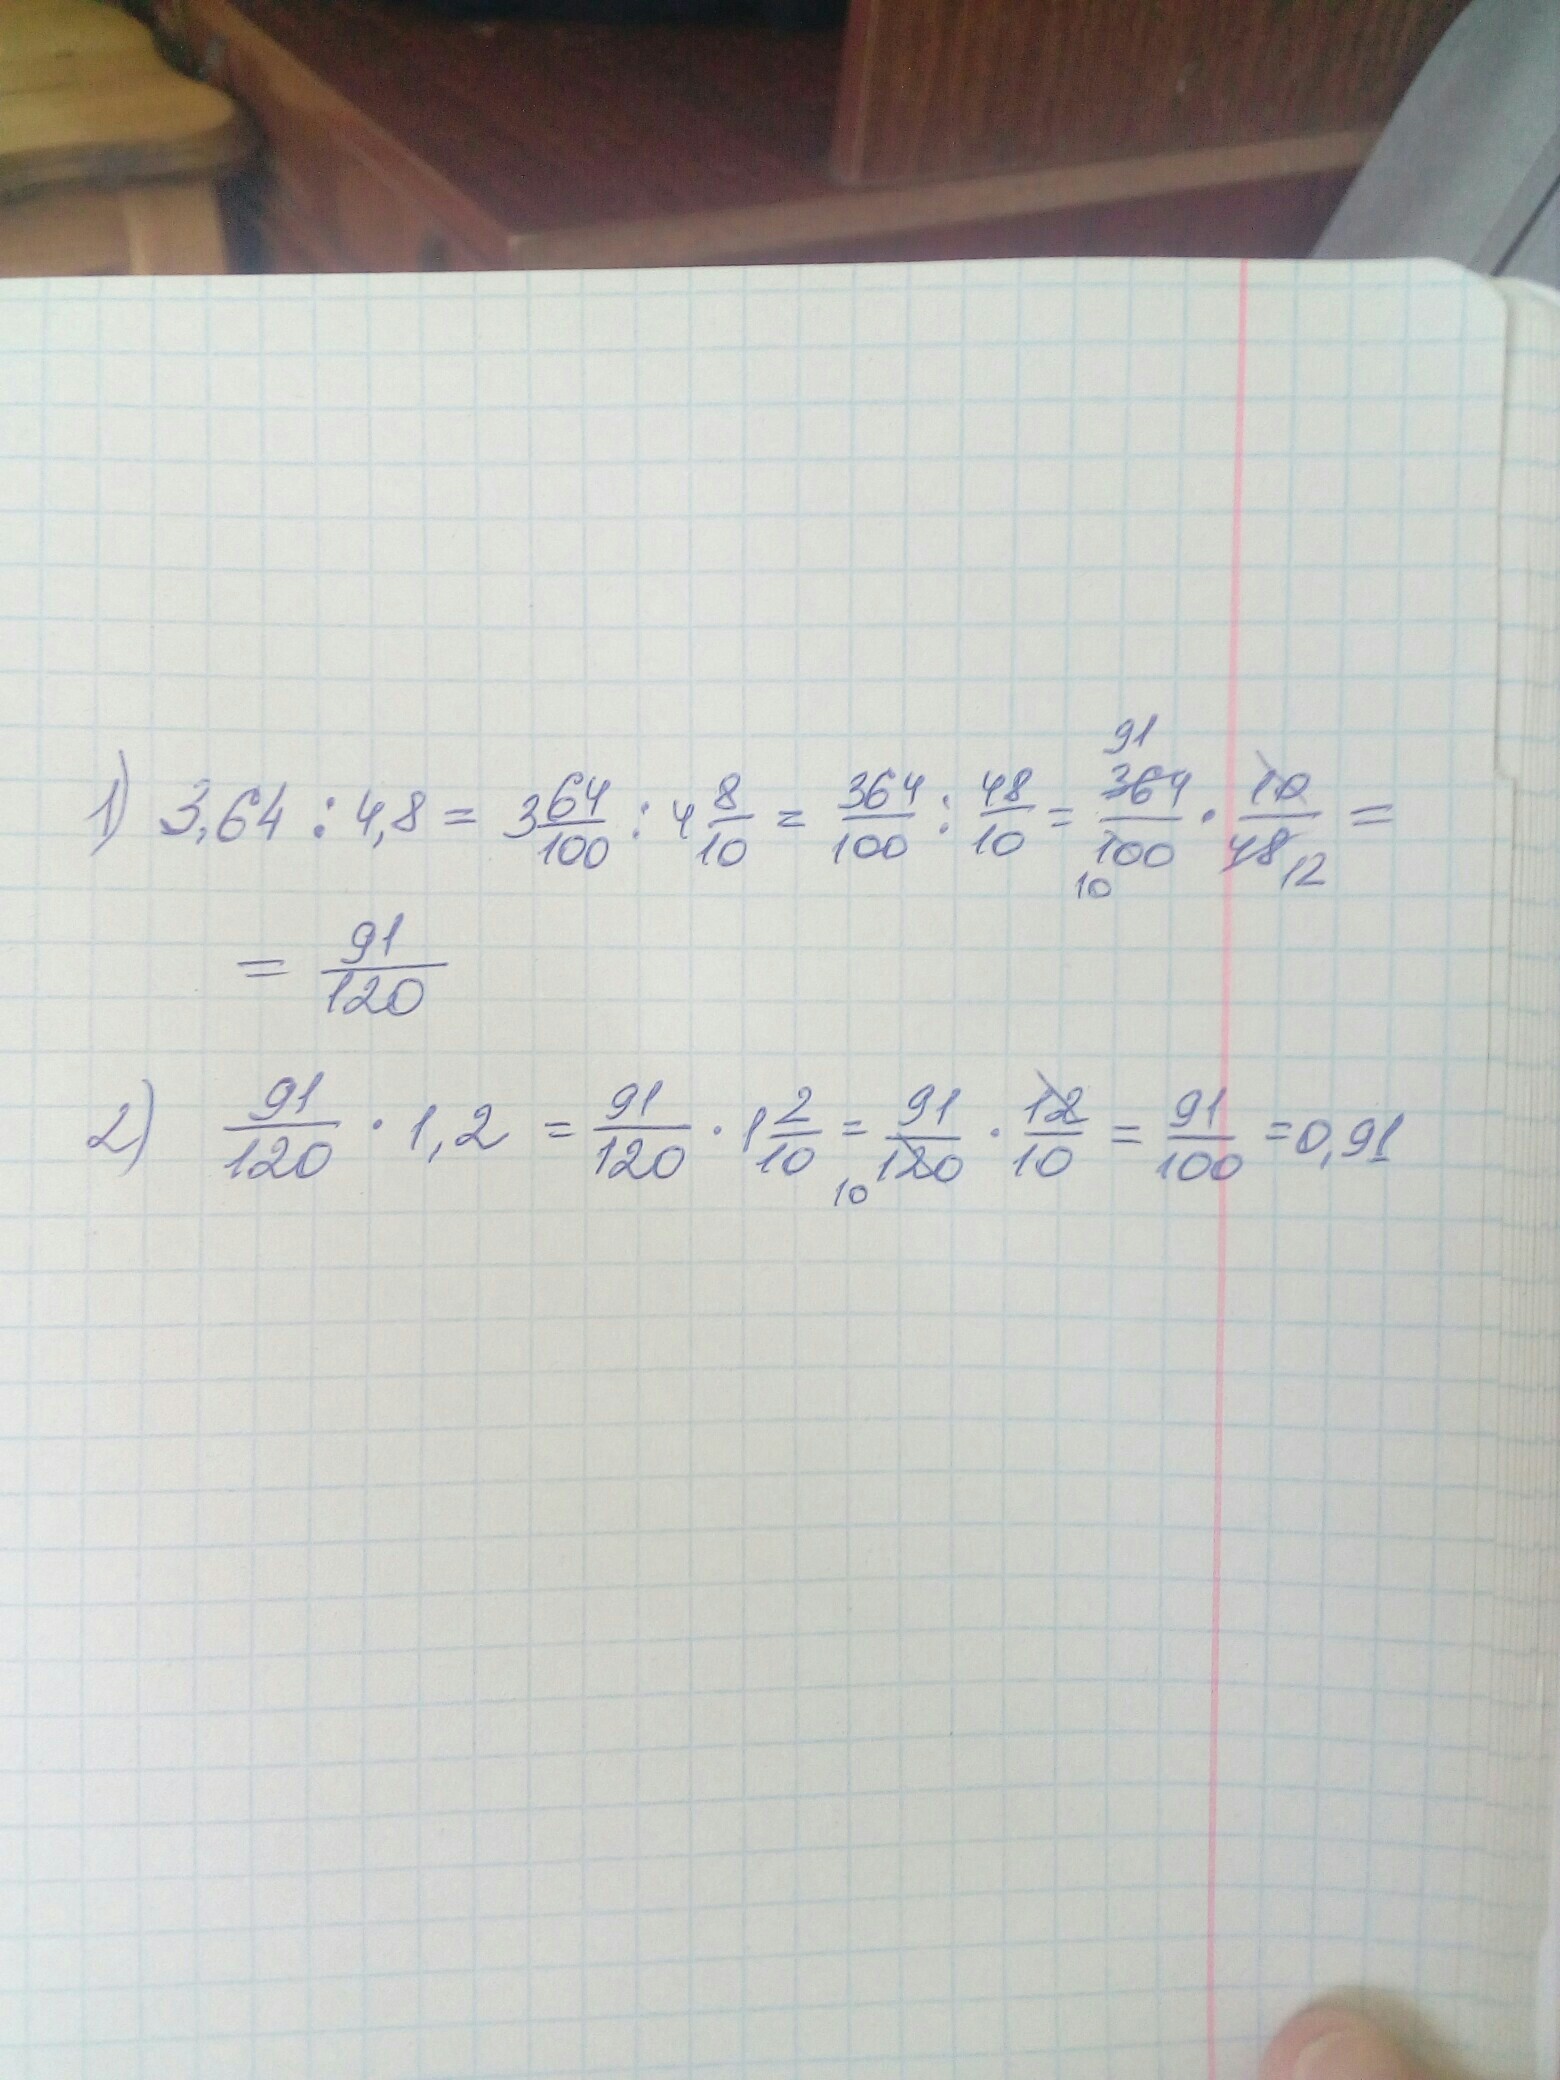 1) 3,64 : 4,8 = 3 64/100 : 4 8/10 = 364/100 : 48/10 = 91 364/100 10 · 10/48 12 =
= 91/120
2) 91/120 · 1,2 = 91/120 · 1 2/10 = 91/120 10 · 12/10 = 91/100 = 0,91